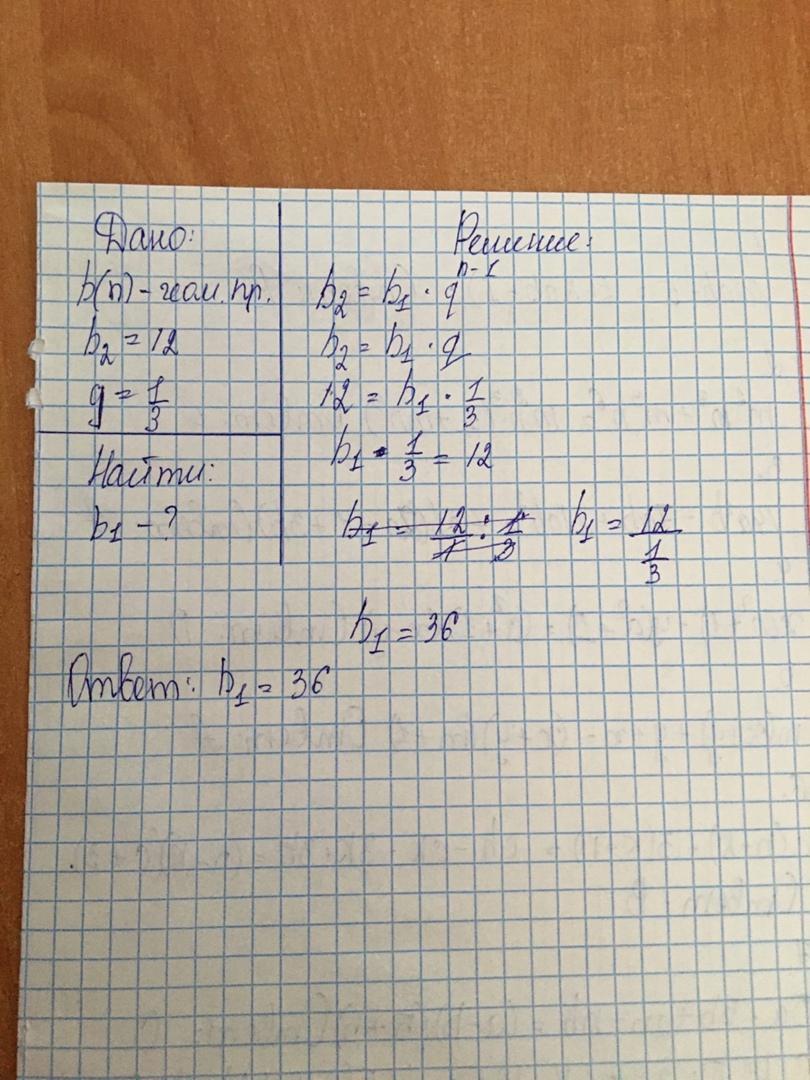 Дано:
b(n) - геом. пр.
b₂ = 12
q = 1/3
Найти:
b₁ - ?
Решение:
b₂ = b₁ · qⁿ⁻¹
b₂ = b₁ · q
12 = b₁ · 1/3
b₁ · 1/3 = 12
b₁ = 12/1 : 1/3
b₁ = 12/(1/3)
b₁ = 36
Ответ: b₁ = 36